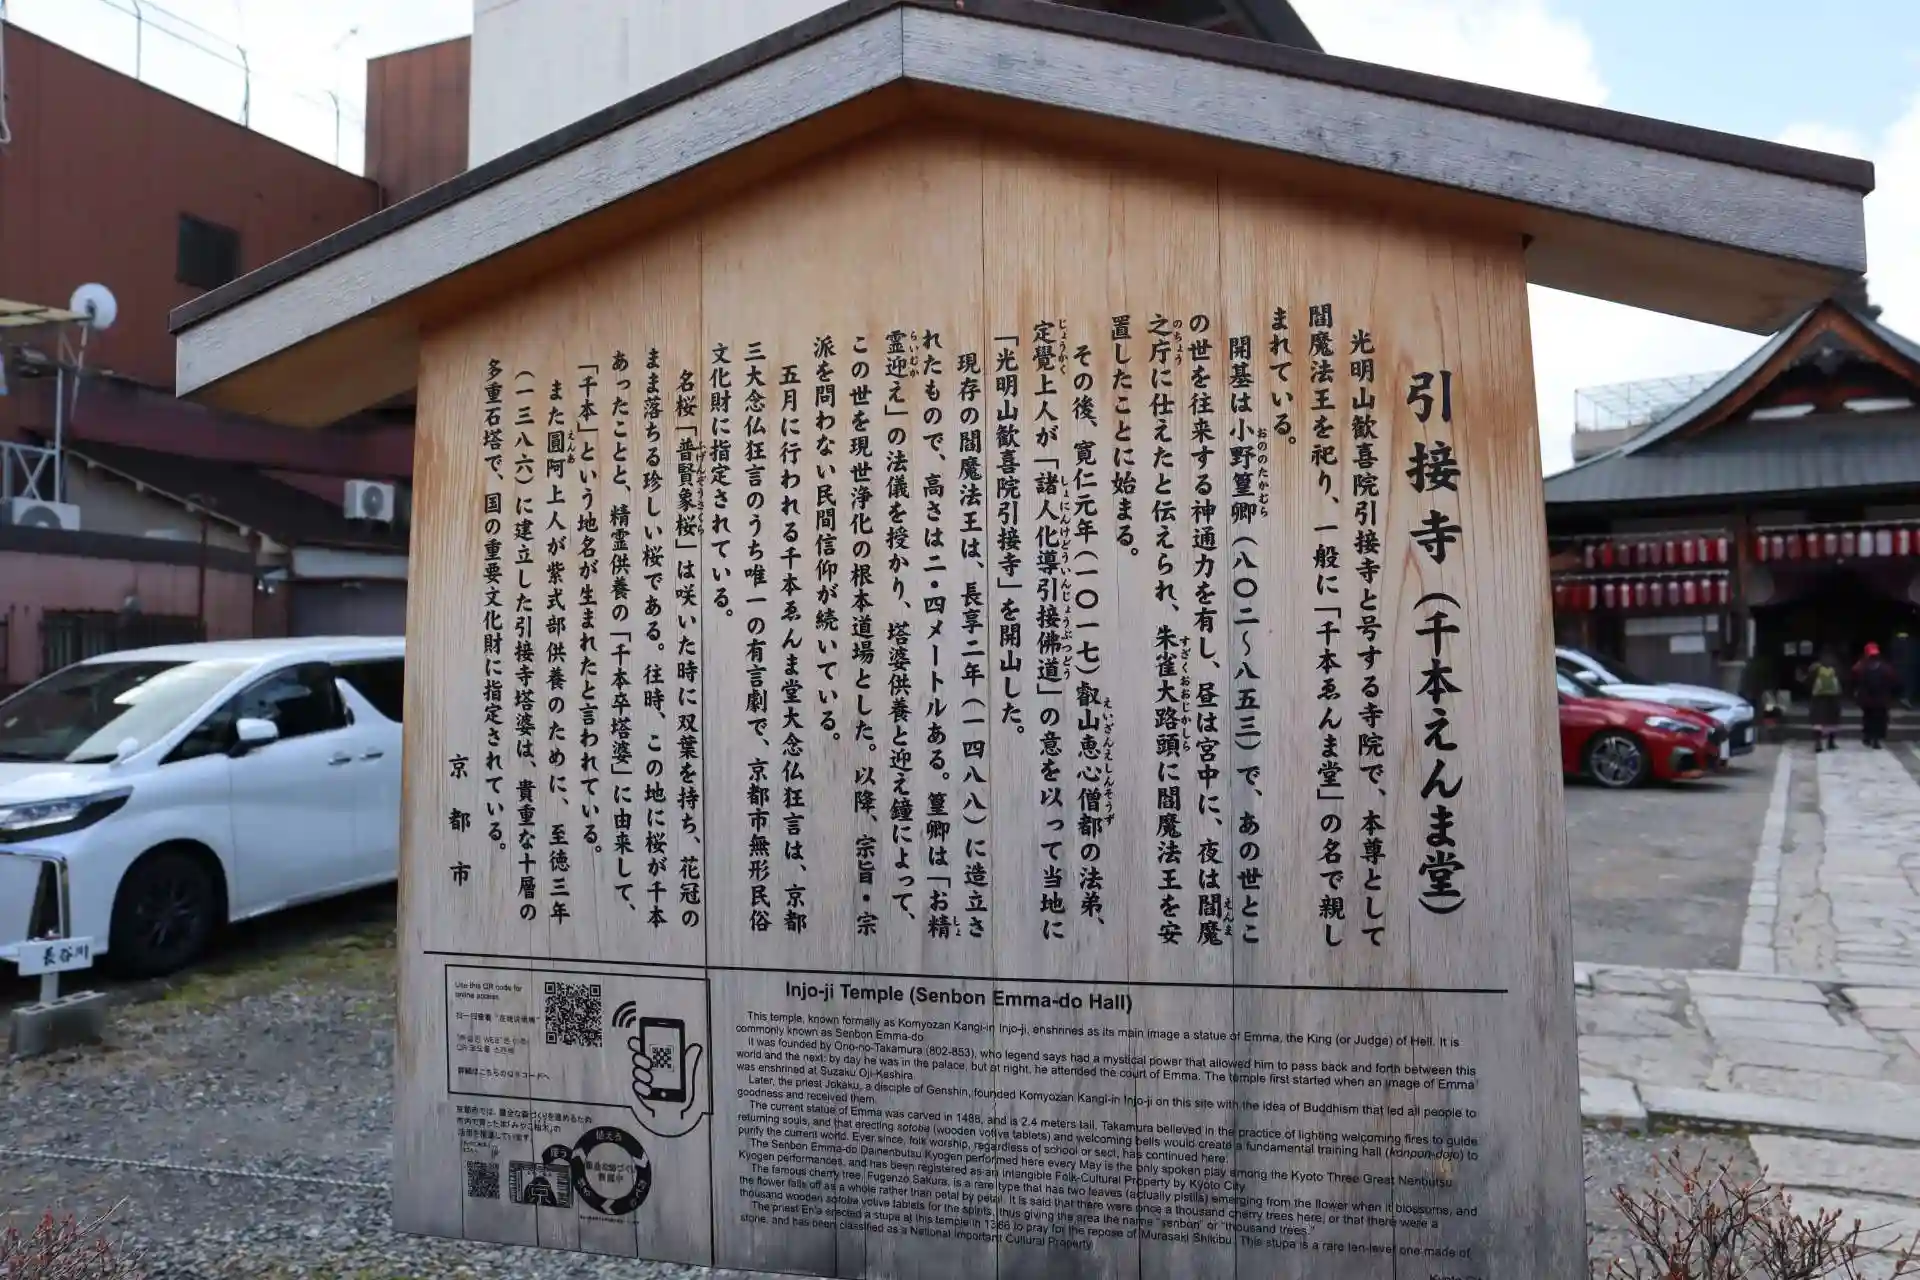 引接寺（千本えんま堂）
光明山歓喜院引接寺と号する寺院で、本尊として
閻魔法王を祀り、一般に「千本ゑんま堂」の名で親し
まれている。
開基は小野篁卿（八〇二～八五三）で、あの世とこ
の世を往来する神通力を有し、昼は宮中に、夜は閻魔
之庁に仕えたと伝えられ、朱雀大路頭に閻魔法王を安
置したことに始まる。
その後、寛仁元年（一〇一七）叡山恵心僧都の法弟、
定覺上人が「諸人化導引接佛道」の意を以って当地に
「光明山歓喜院引接寺」を開山した。
現存の閻魔法王は、長享二年（一四八八）に造立さ
れたもので、高さは二・四メートルある。篁卿は「お精
霊迎え」の法儀を授かり、塔婆供養と迎え鐘によって、
この世を現世浄化の根本道場とした。以降、宗旨・宗
派を問わない民間信仰が続いている。
五月に行われる千本ゑんま堂大念仏狂言は、京都
三大念仏狂言のうち唯一の有言劇で、京都市無形民俗
文化財に指定されている。
名桜「普賢象桜」は咲いた時に双葉を持ち、花冠の
まま落ちる珍しい桜である。往時、この地に桜が千本
あったことと、精霊供養の「千本卒塔婆」に由来して、
「千本」という地名が生まれたと言われている。
また圓阿上人が紫式部供養のために、至徳三年
（一三八六）に建立した引接寺塔婆は、貴重な十層の
多重石塔で、国の重要文化財に指定されている。
京都市
Injo-ji Temple (Senbon Emma-do Hall)
This temple, known formally as Komyozan Kangi-in Injo-ji, enshrines as its main image a statue of Emma, the King (or Judge) of Hell. It is
commonly known as Senbon Emma-do
It was founded by Ono-no-Takamura (802-853), who legend says had a mystical power that allowed him to pass back and forth between this
world and the next: by day he was in the palace, but at night, he attended the court of Emma. The temple first started when an image of Emma
was enshrined at Suzaku Oji-Kashira.
Later, the priest Jokaku, a disciple of Genshin, founded Komyozan Kangi-in Injo-ji on this site with the idea of Buddhism that led all people to
goodness and received them.
The current statue of Emma was carved in 1488, and is 2.4 meters tall. Takamura believed in the practice of lighting welcoming fires to guide
returning souls, and that erecting sotoba (wooden votive tablets) and welcoming bells would create a fundamental training hall (konpon-dojo) to
purify the current world. Ever since, folk worship, regardless of school or sect, has continued here.
The Senbon Emma-do Dainenbutsu Kyogen performed here every May is the only spoken play among the Kyoto Three Great Nenbutsu
Kyogen performances, and has been registered as an Intangible Folk-Cultural Property by Kyoto City.
The famous cherry tree, Fugenzo Sakura, is a rare type that has two leaves (actually pistils) emerging from the flower when it blossoms, and
the flower falls off as a whole rather than petal by petal. It is said that there were once a thousand cherry trees here, or that there were a
thousand wooden sotoba votive tablets for the spirits, thus giving the area the name "senbon" or "thousand trees."
The priest En'a erected a stupa at this temple in 1386 to pray for the repose of Murasaki Shikibu. This stupa is a rare ten-level one made of
stone, and has been classified as a National Important Cultural Property
Use this QR code for
online access
詳細はこちらのQRコードへ
長谷川